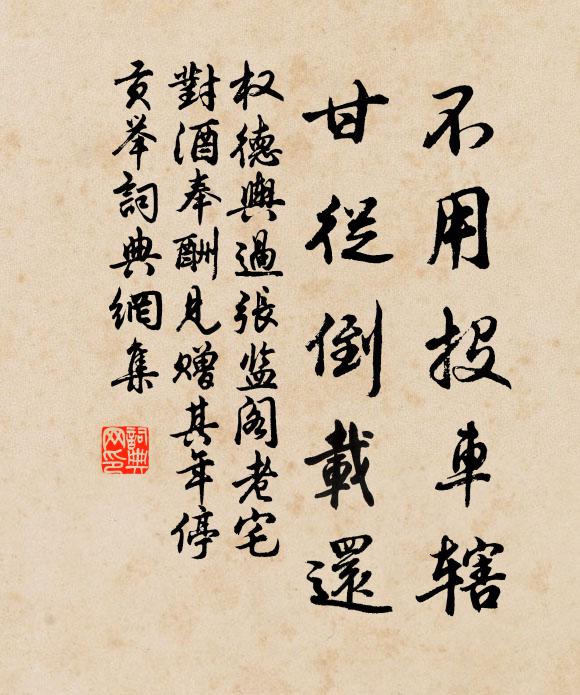 不用投车辖
甘從倒載還
权德輿過張监阁老宅
對酒奉酬見赠其年停
贡举詞典網集
詞典
网印